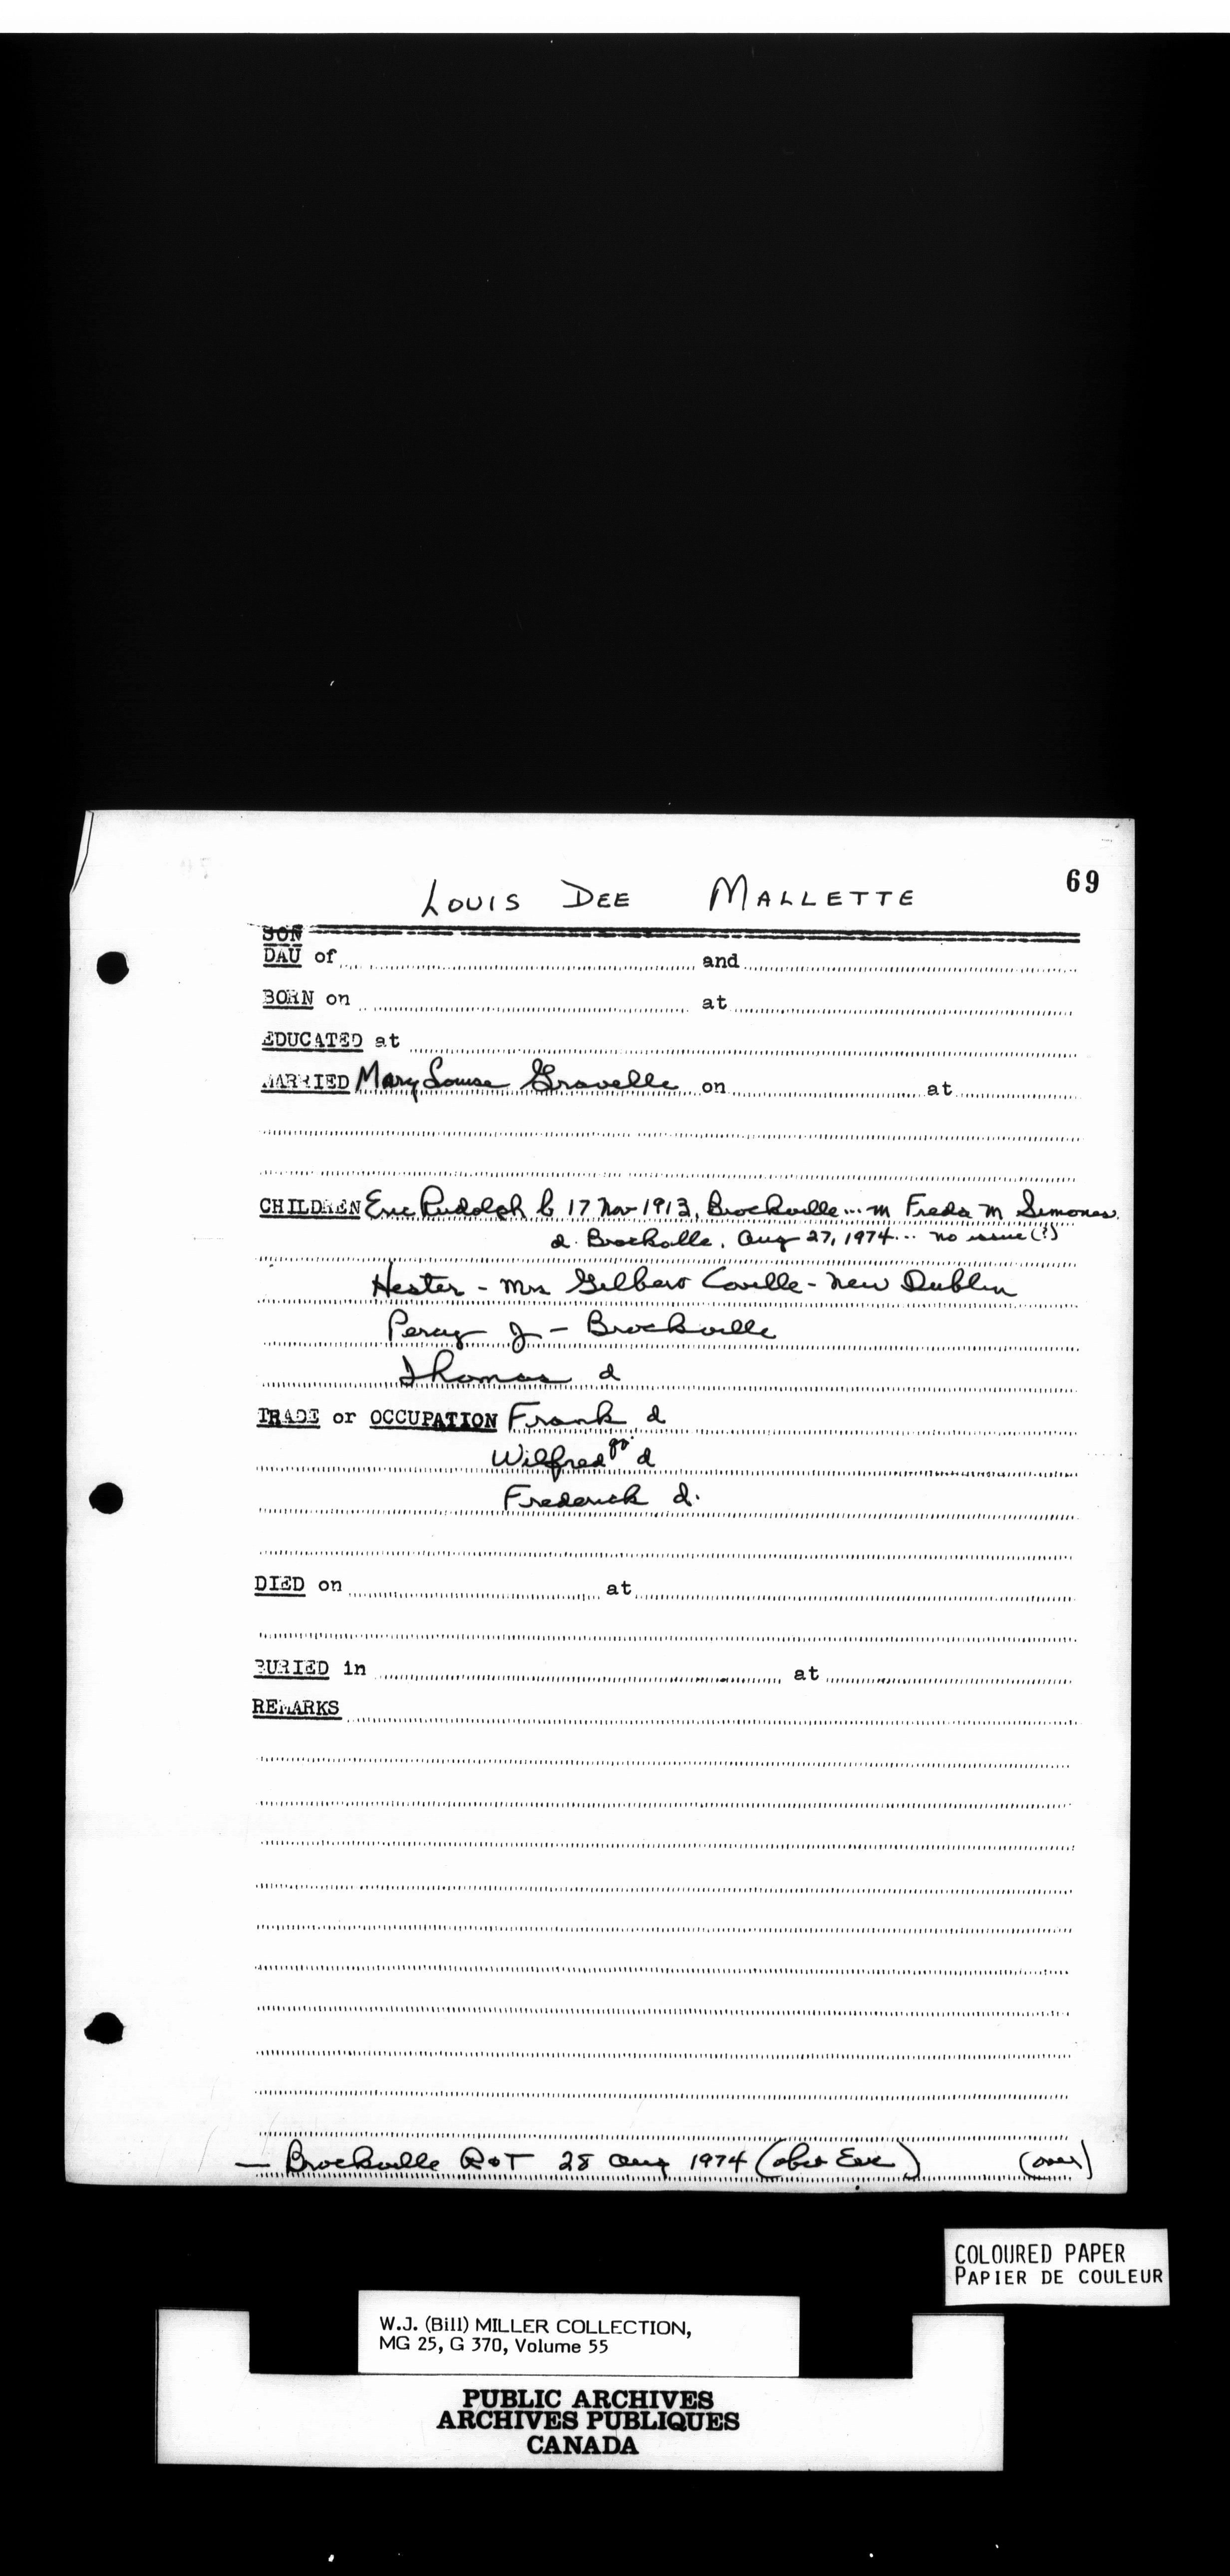 69
LOUIS DEE MALLETTE
SON
DAU of and
BORN on at
EDUCATED at
MARRIED Mary Louise Gravelle on at
CHILDREN Eric Rudolph b 17 Nov 1913, Brockville... m Freda M Simones.
d. Brockville, Aug 27, 1974... no issue (?)
Hester - Mrs Gilbert Coville - New Dublin
Percy J - Brockville
Thomas d
TRADE or OCCUPATION Frank d
Wilfred d
Frederick d.
DIED on at
BURIED in at
REMARKS
— Brockville R & T 28 Aug 1974 (obit Eric) (over)
COLOURED PAPER
PAPIER DE COULEUR
W.J. (Bill) MILLER COLLECTION,
MG 25, G 370, Volume 55
PUBLIC ARCHIVES
ARCHIVES PUBLIQUES
CANADA